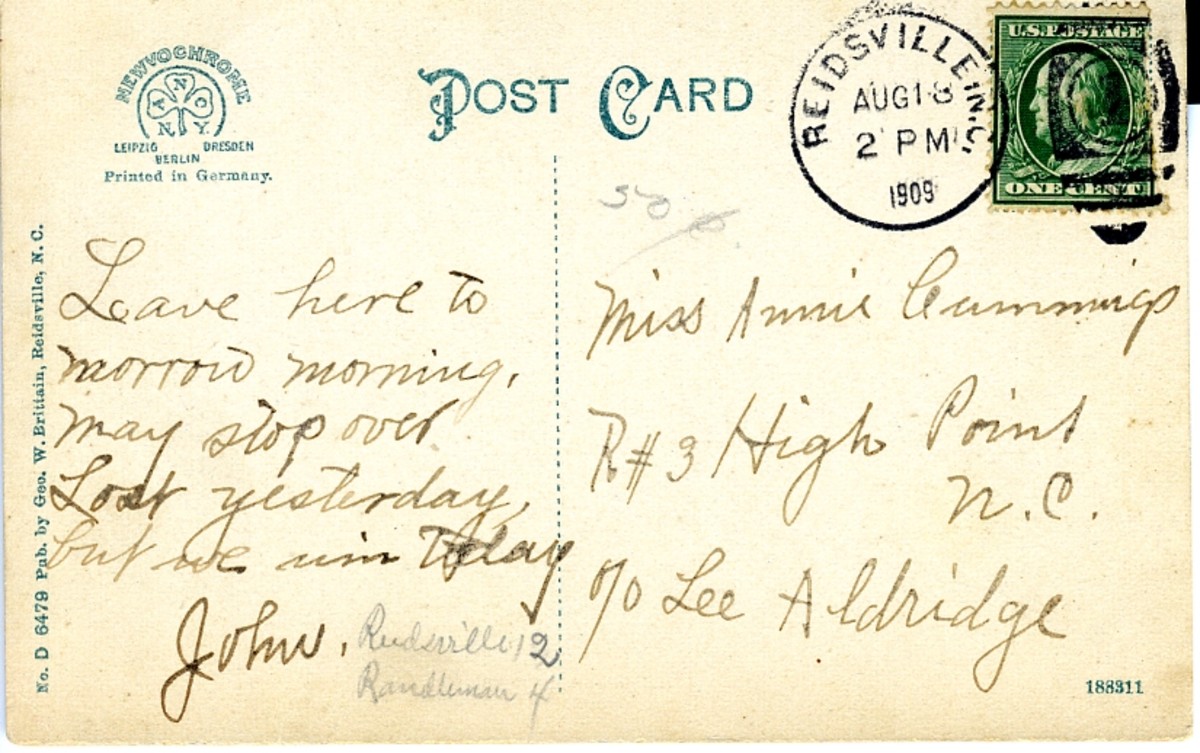 NEWVOCHROME
A N C O
N. Y.
LEIPZIG DRESDEN
BERLIN
Printed in Germany.
POST CARD
REIDSVILLE, N.C.
AUG 18
2 PM
1909
U.S. POSTAGE
ONE CENT
No. D 6479 Pub. by Geo. W. Brittain, Reidsville, N. C.
50
Leave here to
morrow morning,
may stop over.
Lost yesterday,
but we win Today
John.
Reidsville 12
Randleman 4
Miss Annie Cummings
R# 3 High Point
N. C.
c/o Lee Aldridge
188311